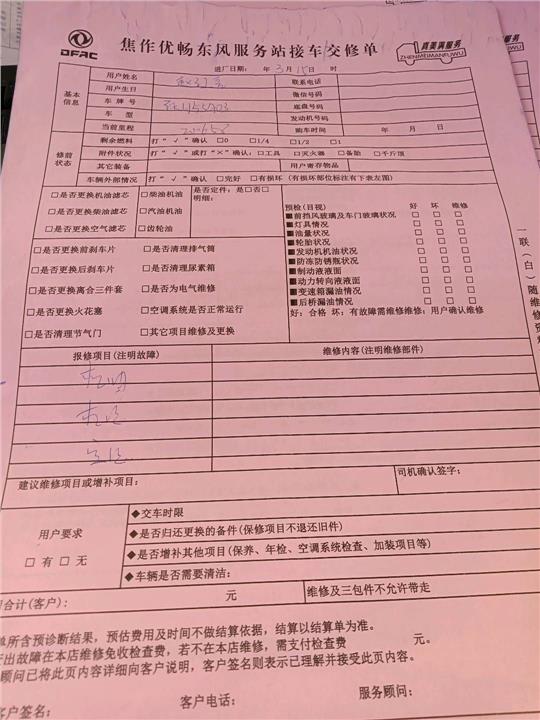 DFAC
焦作优畅东风服务站接车交修单
真美满服务
ZHENMEIMANFUWU
进厂日期: 年 3 月 15 日 时
基本信息
用户姓名 联系电话
用户生日 微信号码
车牌号 底盘号码
车型 发动机号码
当前里程 购车时间 年 月 日
修前状态
剩余燃料 打“√”确认 □0 □1/4 □1/2 □1
附件状况 打“√”或打“×”确认:□工具 □灭火器 □备胎 □千斤顶
其它装备 用户寄存物品
车辆外部情况 打“√”确认 □完好 □有损坏(有损坏部位标注有下表左图)
□是否更换机油滤芯 □柴油机油 是否定件:是□否□
□是否更换柴油滤芯 □汽油机油 明细:
□是否更换空气滤芯 □齿轮油
□是否更换前刹车片 □是否清理排气筒
□是否更换后刹车片 □是否清理尿素箱
□是否更换离合三件套 □是否为电气维修
□是否更换火花塞 □空调系统是否正常运行
□是否清理节气门 □其它项目维修及更换
预检(目视) 好 坏 维修
■前挡风玻璃及车门玻璃状况 □ □ □
■灯具情况 □ □ □
■油量状况 □ □ □
■轮胎状况 □ □ □
■发动机机油状况 □ □ □
■防冻防锈瓶状况 □ □ □
■制动液液面 □ □ □
■动力转向液液面 □ □ □
■变速箱漏油情况 □ □ □
■后桥漏油情况 □ □ □
好:合格 坏:有故障需维修维修:用户确认维修
一联(白)随维修资料
报修项目(注明故障) 维修内容(注明维修部件)
建议维修项目或增补项目: 司机确认签字:
用户要求
□ 有 □ 无
◆交车时限
◆是否归还更换的备件(保修项目不退还旧件)
◆是否增补其他项目(保养、年检、空调系统检查、加装项目等)
◆车辆是否需要清洁:
合计(客户): 元 维修及三包件不允许带走
单所含预诊断结果,预估费用及时间不做结算依据,结算以结算单为准。
出故障在本店维修免收检查费,若不在本店维修,需支付检查费 元。
顾问已将此页内容详细向客户说明,客户签名则表示已理解并接受此页内容。
客户签名: 客户电话: 服务顾问: